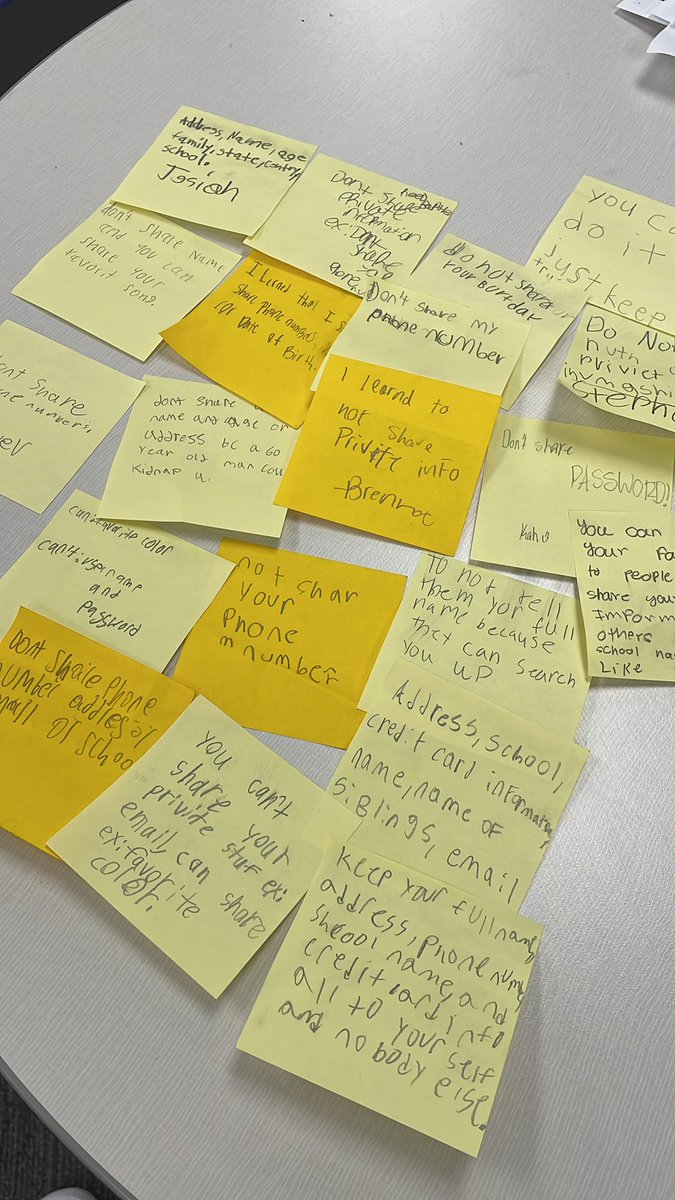 Address, Name, age
family, state, contry,
school.
Josiah
Dont share
private
information
ex: Dont
share
you
Phone
don't share name
and you can
share your
favorit song.
I Lernd that I
share Phone numbers,
or Date of Birth.
Do not share
your Burt day
you ca
do it
just keep
Don't share my
phone number
Do Not
privict
Steph
dont share
ne numbers,
ver
dont share
name and age or
address bc a 60
year old man cou
kidnap u.
I learnd to
not share
Privite info
Don't share
PASSWORD!
can: favorite color
can't: username
and
password
not shar
your
phone
m number
To not tell
them yor full
name because
they can search
you up
You can
your Fa
to people
share you
Imform
others
school na
Like
Dont share phone
number addres or
email or schoo
you can't
share your
privite stuf ex:
email, can share
ex: favorite
color.
Address, School,
credit card information,
name, name of
siblings, email
keep your full name,
address, phone numbe
shcool name, and
credit card info
all to your self
and no body else.